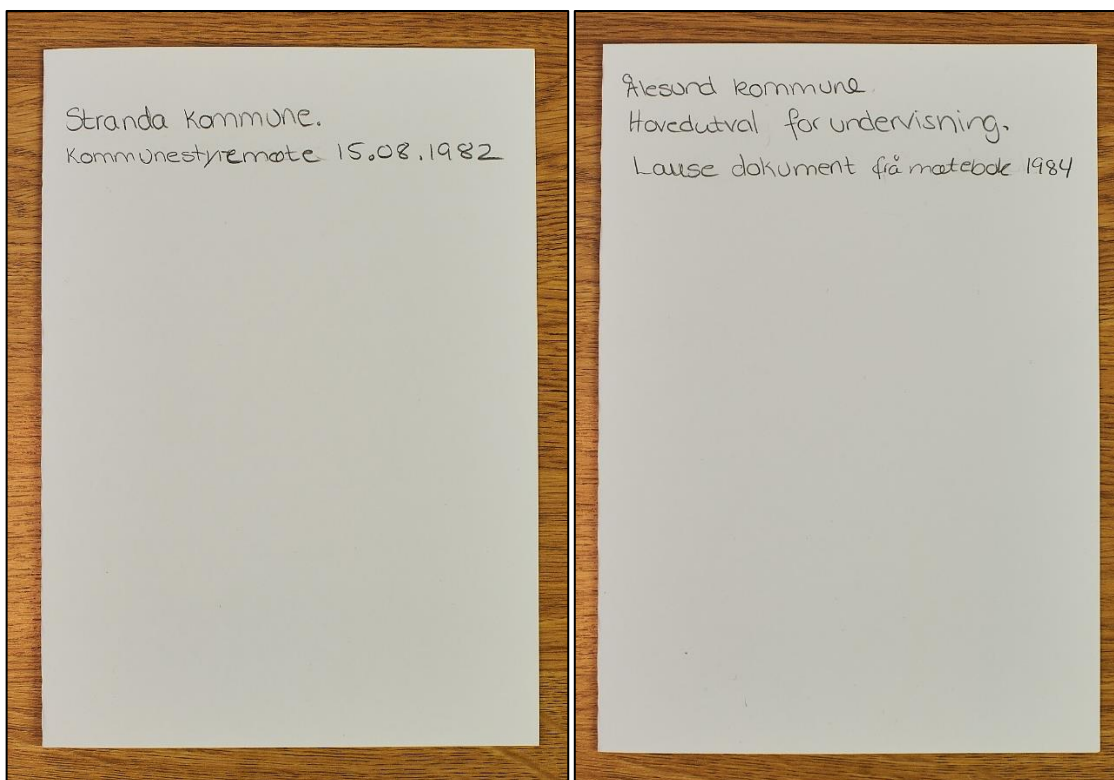 Stranda kommune.
Kommunestyremøte 15.08.1982
Ålesund kommune
Hovedutval for undervisning.
Lause dokument frå møtebok 1984